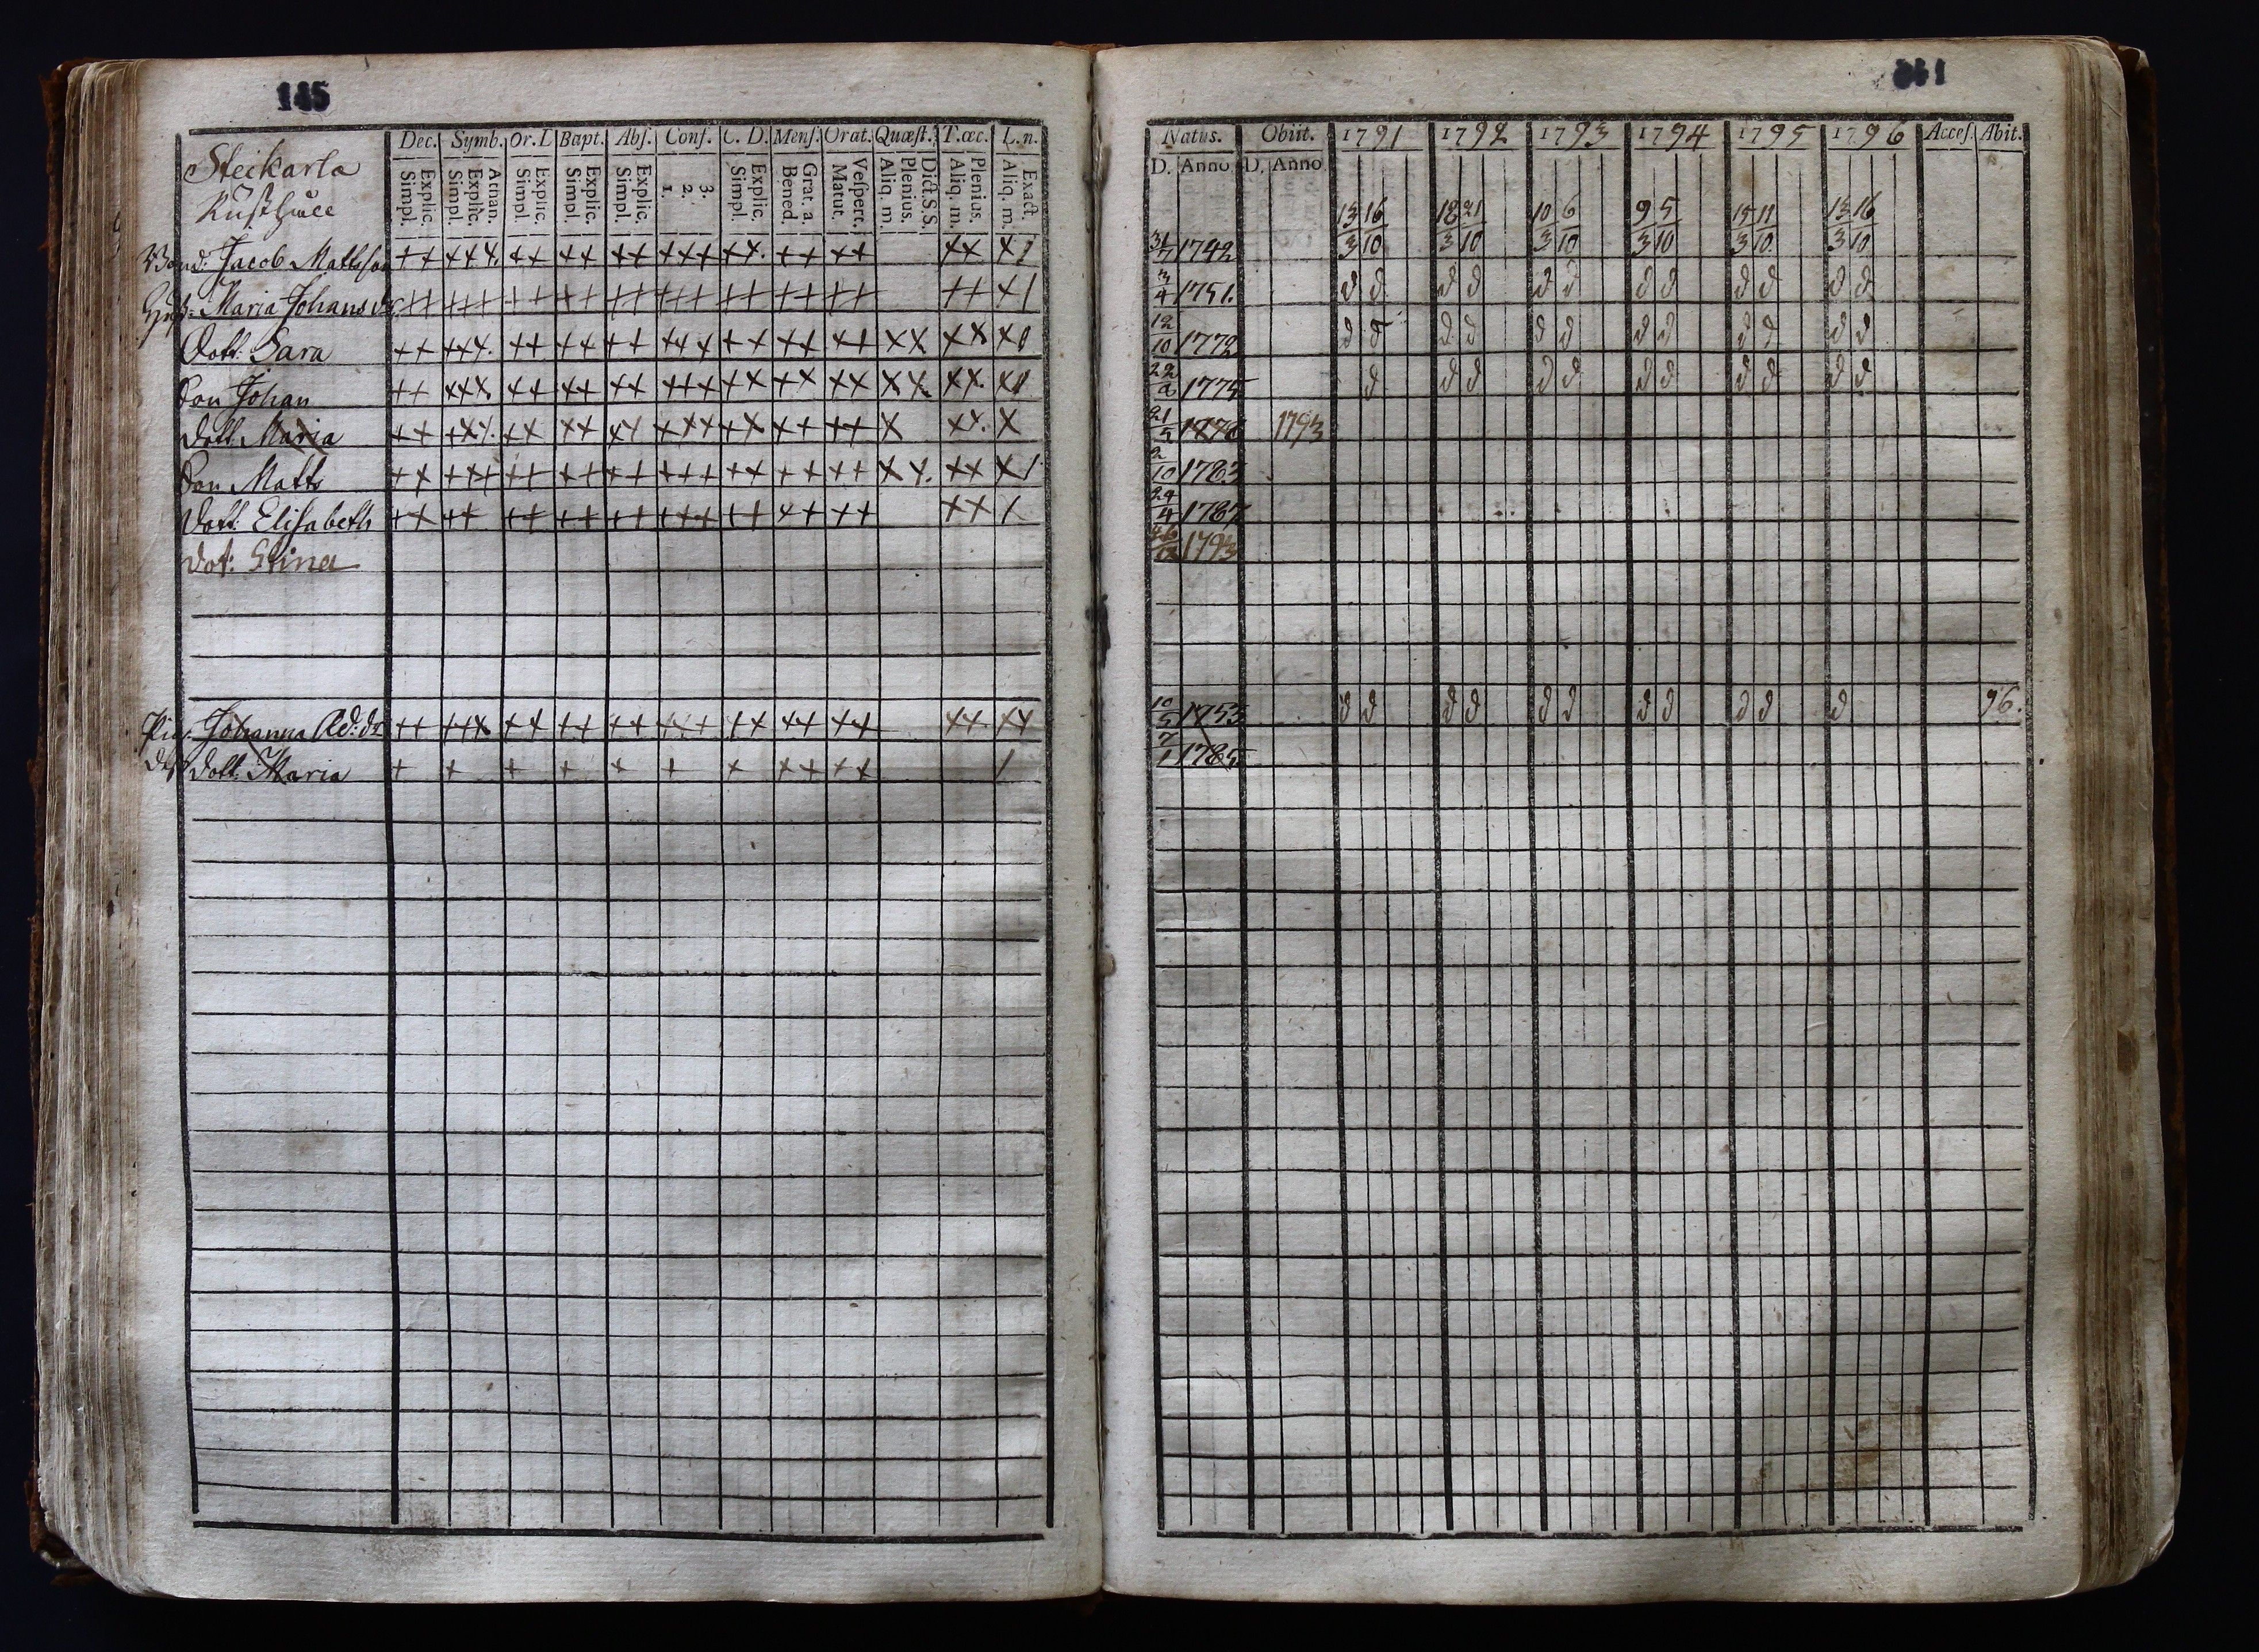 145
Dec. Symb. Or. L Bapt. Abſ. Conf. C. D. Menſ. Orat. Quæſt. T. œc. L. n.
Explic. Simpl. Athan. Explic. Simpl. Explic. Simpl. Explic. Simpl. Explic. Simpl. 3. 2. 1. Explic. Simpl. Grat. a. Bened. Veſpert. Matut. Dict. S. S. Plenius. Aliq. m. Plenius. Aliq. m. Exact. Aliq. m.
Steikarla
Rusthåll
Bond: Jacob Mattsson ++ +++ ++ ++ ++ +++ ++ ++ ++ ++
Hust: Maria Johansdr ++ +++ ++ ++ ++ +++ ++ ++ ++ ++
Dott: Sara ++ +++ ++ ++ ++ +++ ++ ++ ++ ++ ++
Son Johan ++ +++ ++ ++ ++ +++ ++ ++ ++ ++ ++
Dott: Maria ++ +++ ++ ++ ++ +++ ++ ++ ++ + ++ +
Son Matts ++ +++ ++ ++ ++ +++ ++ ++ ++ ++ ++
Dott: Elisabeth ++ ++ ++ ++ ++ +++ ++ ++ ++ ++
Dot: Stina
Pig. Johanna Ad:dr ++ +++ ++ ++ ++ +++ ++ ++ ++ ++ ++
Dott: Maria + + + + + + + ++ ++
Natus. Obiit. 1791 1792 1793 1794 1795 1796 Acceſ. Abit.
D. Anno D. Anno
13/3 16/10 18/3 21/10 10/3 6/10 9/3 5/10 15/3 11/10 13/3 16/10
31/7 1742
3/4 1751. d d d d d d d d d d d d
12/10 1772 d d d d d d d d d d d d
1775 d d d d d d d d d d d
21/5 1793
2/10 1783
24/4 1787
1793
10/5 1753 d d d d d d d d d d d 96.
7/1 1785